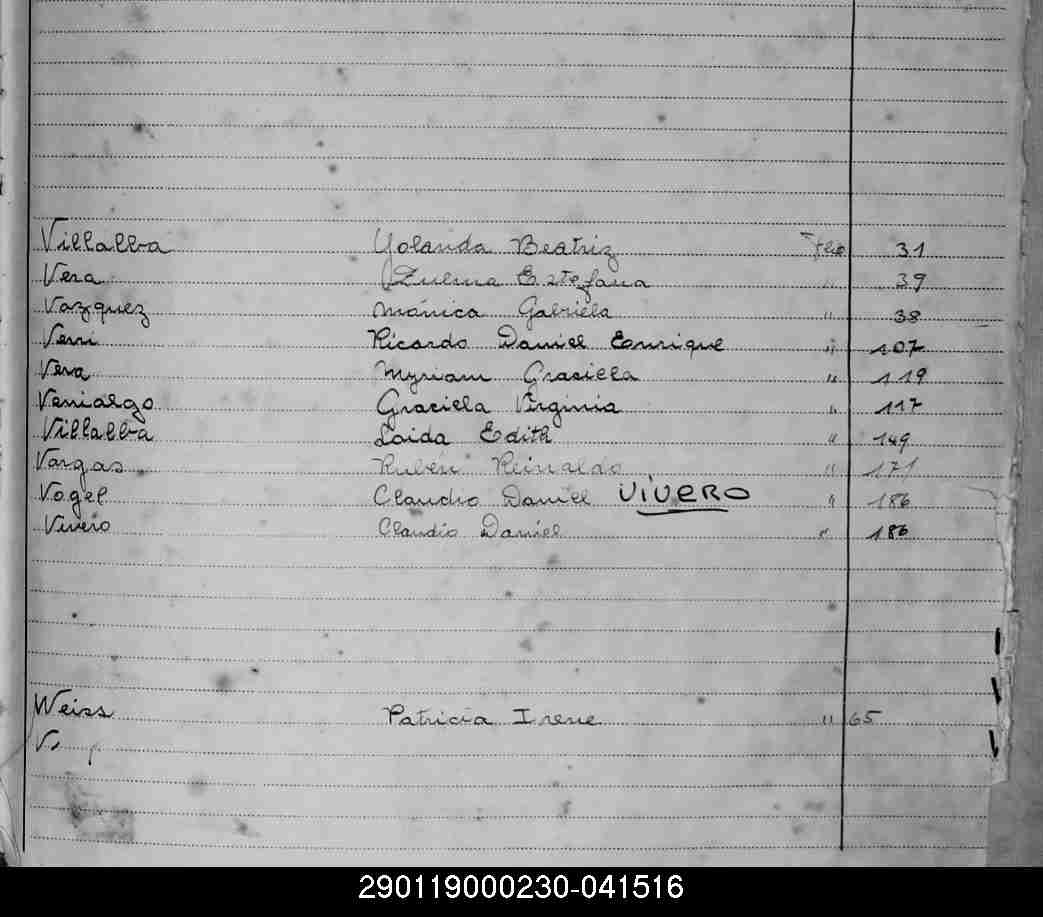 Villalba Yolanda Beatriz Flio 31
Vera Zulma Estefana " 39
Vazquez Mónica Gabriela " 38
Verri Ricardo Daniel Enrique " 107
Vera Myriam Graciela " 119
Venialgo Graciela Virginia " 117
Villalba Laida Edith " 149
Vargas Rubén Reinaldo " 171
Vogel Claudio Daniel VIVERO " 186
Vivero Claudio Daniel " 186
Weiss Patricia Irene " 65
290119000230-041516